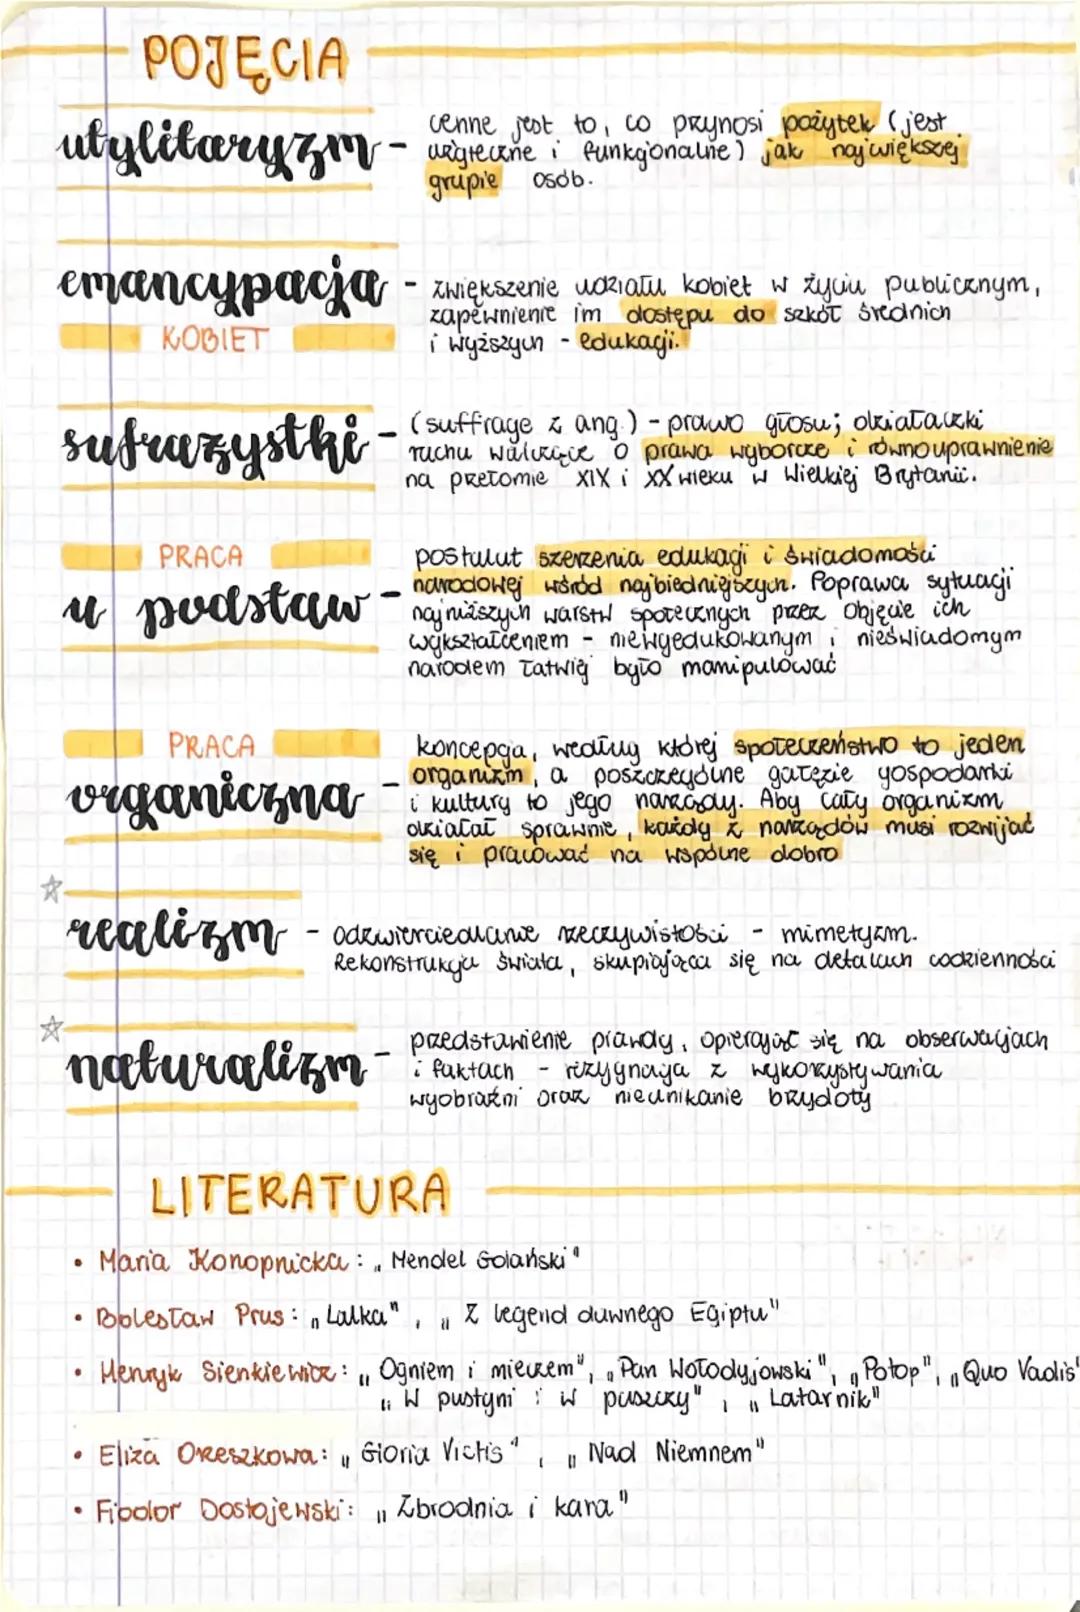 POJĘCIA
utylitaryzm - cenne jest to, co przynosi pożytek (jest
użyteczne i funkcjonalne) jak największej
grupie osób.
emancypacja - zwiększenie udziału kobiet w życiu publicznym,
KOBIET
zapewnienie im dostępu do szkół średnich
i wyższych - edukacji.
sufrażystki - (suffrage z ang.) - prawo głosu; działaczki
ruchu walczące o prawa wyborcze i równouprawnienie
na przełomie XIX i XX wieku w Wielkiej Brytanii.
PRACA
u podstaw - postulut szerzenia edukacji i świadomości
narodowej wśród najbiedniejszych. Poprawa sytuacji
najniższych warstw społecznych przez objęcie ich
wykształceniem - niewyedukowanym i nieświadomym
narodem łatwiej było manipulować
PRACA
organiczna - koncepcja, według której społeczeństwo to jeden
organizm, a poszczególne gałęzie gospodarki
i kultury to jego narządy. Aby cały organizm
działał sprawnie, każdy z narządów musi rozwijać
się i pracować na wspólne dobro
realizm - odzwierciedlanie rzeczywistości - mimetyzm.
Rekonstrukcja świata, skupiająca się na detalach codzienności
naturalizm - przedstawienie prawdy, opierając się na obserwacjach
i faktach - rezygnacja z wykorzystywania
wyobraźni oraz nieunikanie brzydoty
LITERATURA
• Maria Konopnicka: „Mendel Gdański"
• Bolesław Prus: „Lalka", „Z legend dawnego Egiptu"
• Henryk Sienkiewicz: „Ogniem i mieczem", „Pan Wołodyjowski", „Potop", „Quo Vadis"
„W pustyni i w puszczy", „Latarnik"
• Eliza Orzeszkowa: „Gloria Victis", „Nad Niemnem"
• Fiodor Dostojewski: „Zbrodnia i kara"